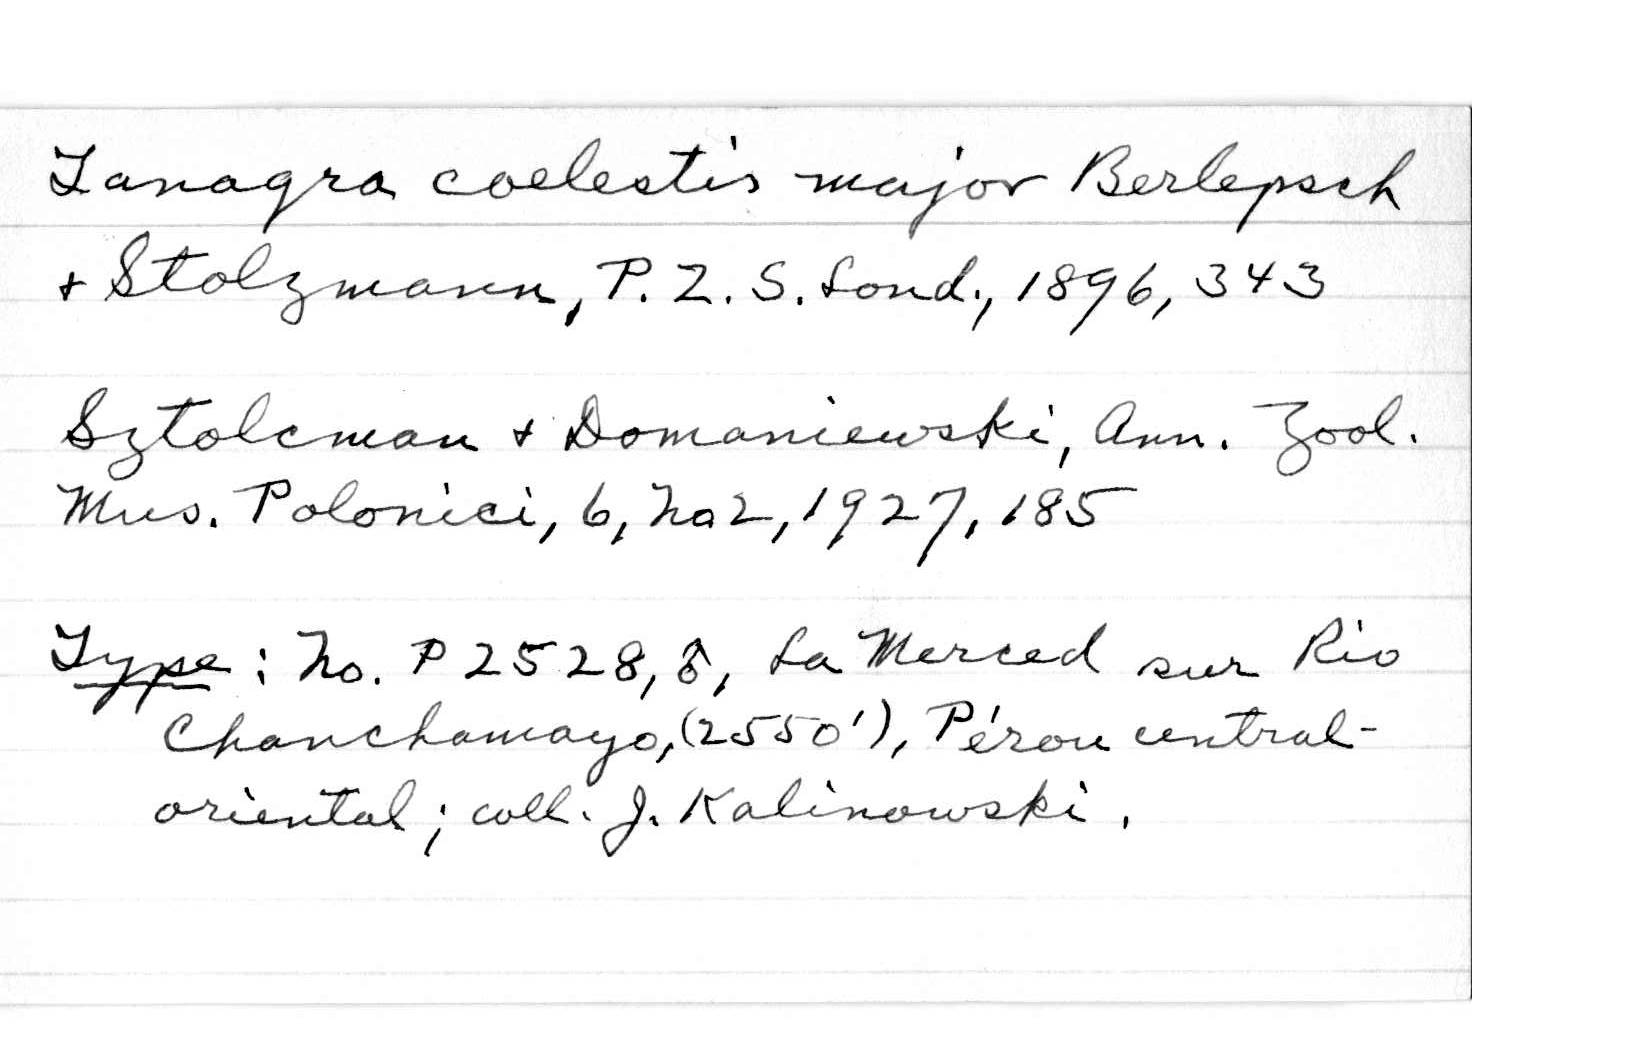 Tanagra coelestis major Berlepsch
+ Stolzmann, P. Z. S. Lond., 1896, 343
Sztolcman + Domaniewski, Ann. Zool.
Mus. Polonici, 6, No 2, 1927, 185
Type : No. P 2528, ♂, La Merced sur Rio
Chanchamayo, (2550'), Pérou central-
oriental ; coll. J. Kalinowski .